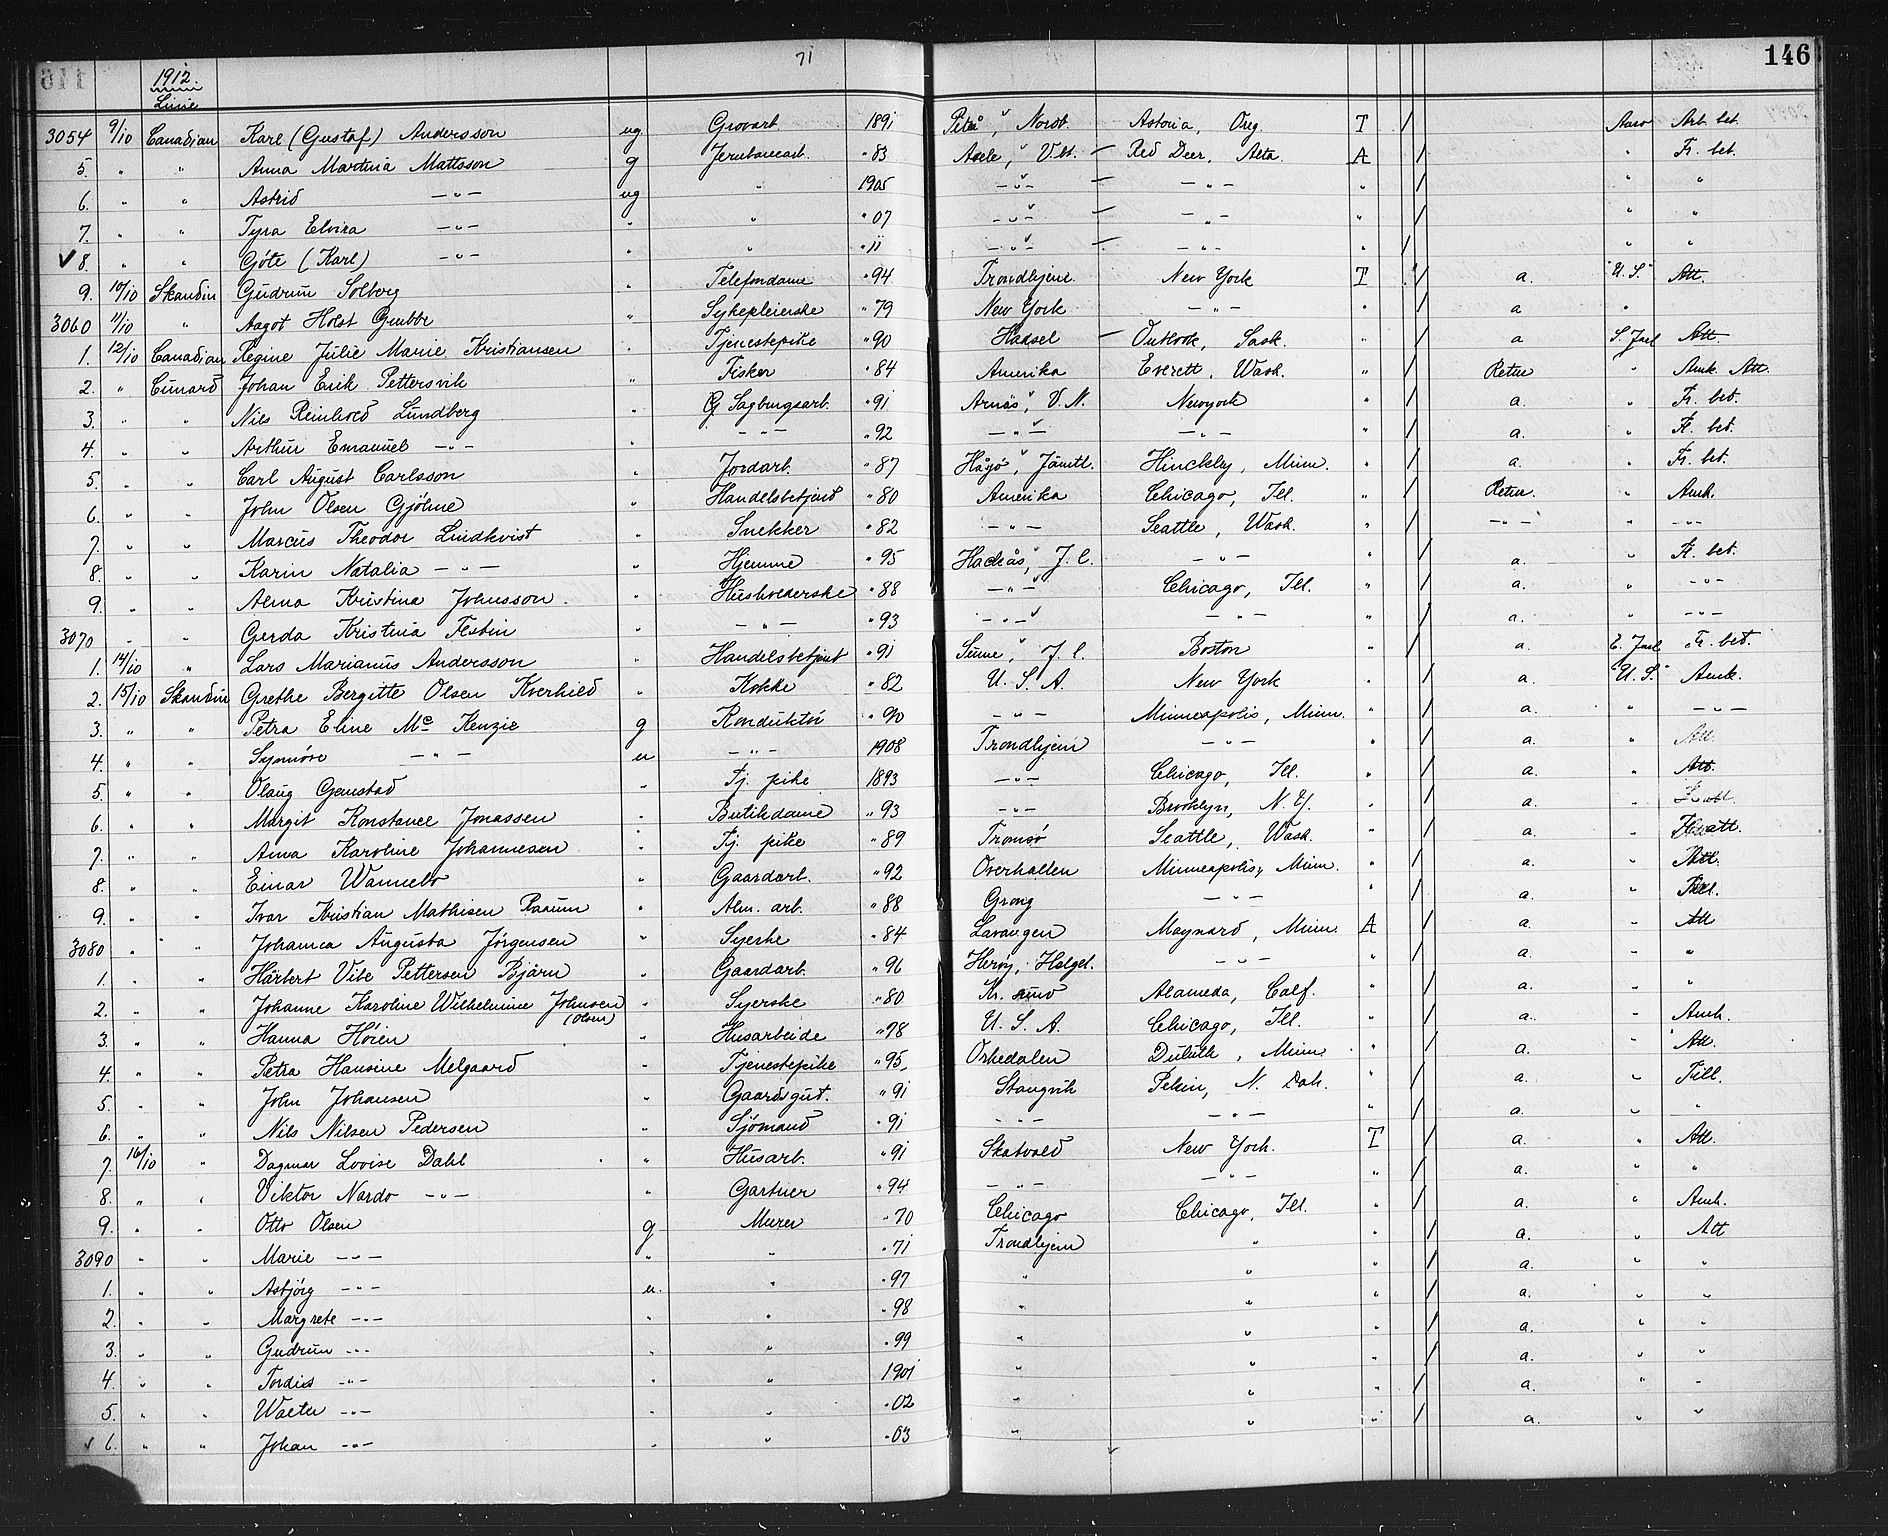 116 71 146
1912.
Linie
3054 9/10 Canadian Karl (Gustaf) Andersson ug Grovarb. 1891 Piteå, Nordb. Astoria, Oreg. T / Aaro Arb. bet.
5. " " Anna Martina Mattsson g Jernbanearb. " 83 Asele, V.bt. — Red Deer, Alta. A / " Fr. bet.
6. " " Astrid —"— ug " 1905 —"— — —"— " / " "
7. " " Tyra Elvira —"— " " " 07 —"— — —"— " / " "
✓ 8. " " Göte (Karl) —"— " " " 11 —"— — —"— " / " "
9. 10/10 Skandin Gudrun Solberg " Telefondame " 94 Trondhjem New York T / a. "U.S." Att.
3060 11/10 " Aagot Holst Grubbe " Sykepleierske " 79 New York —"— " / a "
1. 12/10 Canadian Regine Julie Marie Kristiansen " Tjenestepike " 90 Hadsel — Outlook, Sask. " / a S. Jarl Att
2. " Cunard Johan Erik Pettersvik " Fisker " 84 Amerika Everett, Wash. " / Retur " Amk. Att.
3. " " Nils Reinhold Lundberg " G Sagbrugsarb. " 91 Arnäs, V.N. Newyork " / a. " Fr. bet.
4. " " Arthur Emanuel —"— " —"— " 92 —"— —"— " / a. " Fr. bet.
5. " " Carl August Carlsson " Jordarb. " 87 Håsjö, Jämtl. Hinckley, Minn. " / a. " Fr. bet.
6. " " John Olsen Gjölme " Handelsbetjend " 80 Amerika Chicago, Ill. " / Retur. " Amk.
7. " " Marcus Theodor Lindkvist " Snekker " 82 —"— Seattle, Wash. " / —"— " —"—
8. " " Karin Natalia —"— " Hjemme " 95 Hackås, J.l. —"— " / a. " Fr. bet.
9. " " Alma Kristina Johnsson. " Husholderske " 88 —"— Chicago, Ill. " / a. " —"—
3070 " " Gerda Kristina Festin " —"— " 93 —"— —"— " / a. " —"—
1. 14/10 " Lars Marianus Andersson " Handelsbetjent " 91 Sunne, J.l. Boston " / a. E. Jarl Fr. bet.
2. 15/10 Skandin Grethe Bergitte Olsen Kverhild " Kokke " 82 U.S.A. New York " / a. "U.S." Amk.
3. " " Petra Eline Mc Kenzie g Konduktör " 90 —"— Minneapolis, Minn. " / a. " —"—
4. " " Synnöve —"— u —"— 1908 Trondhjem —"— " / a. " Att.
5. " " Olaug Gjemstad " Tj. pike 1893 —"— Chicago, Ill. " / a. " Att.
6. " " Margit Konstance Jonassen " Butikdame " 93 —"— Brooklyn, N.Y. " / a. "
7. " " Anna Karoline Johannesen " Tj. pike " 89 Tromsö Seattle, Wash. " / a. "
8. " " Einar Wannebo " Gaardarb. " 92 Overhallen Minneapolis, Minn. " / a. " Att.
9. " " Ivar Kristian Mathisen Raaum " Alm. arb. " 88 Grong —"— " / a. "
3080 " " Johanna Augusta Jörgensen " Syerske " 84 Lavangen Maynard, Minn. A / a. " Att
1. " " Härbert Vibe Pettersen Bjørn " Gaardarb. " 96 Heröy, Helgel. —"— " / a. " "
2. " " Johanne Karoline Wilhelmine Johnsen (Olsen) " Syerske " 80 Kr. sund Alameda, Calf. " / a. " "
3. " " Hanna Höien " Husarbeide " 78 U.S.A. Chicago, Ill. " / a. " Amk.
4. " " Petra Hansine Melgaard " Tjenestepike " 95 Orkedalen Duluth, Minn. " / a. " Att.
5. " " John Johansen " Gaardsgut. " 91 Stangvik Pekin, N. Dak. " / a. " Till.
6. " " Nils Nilsen Pedersen " Sjömand " 91 —"— —"— " / a. " "
7. 16/10 " Dagmar Lovise Dahl " Husarb. " 91 Skatvold New York. T / a. " Att.
8. " " Viktor Nardo —"— " Gartner " 94 —"— —"— " / a. " "
9. " " Otto Olsen g Murer " 70 Chicago Chicago, Ill. " / a. " Amk.
3090 " " Marie —"— " " " 71 Trondhjem " " / a. " Att
1. " " Asbjörg —"— u. " " 97 " " " / a. " "
2. " " Margrete —"— " " " 98 " " " / a. " "
3. " " Gudrun —"— " " " 99 " " " / a. " "
4. " " Tordis —"— " " 1901 " " " / a. " "
5. " " Walter —"— " " " 02 " " " / a. " "
✓ 6. " " Johan —"— " " " 03 " " " / a. " "